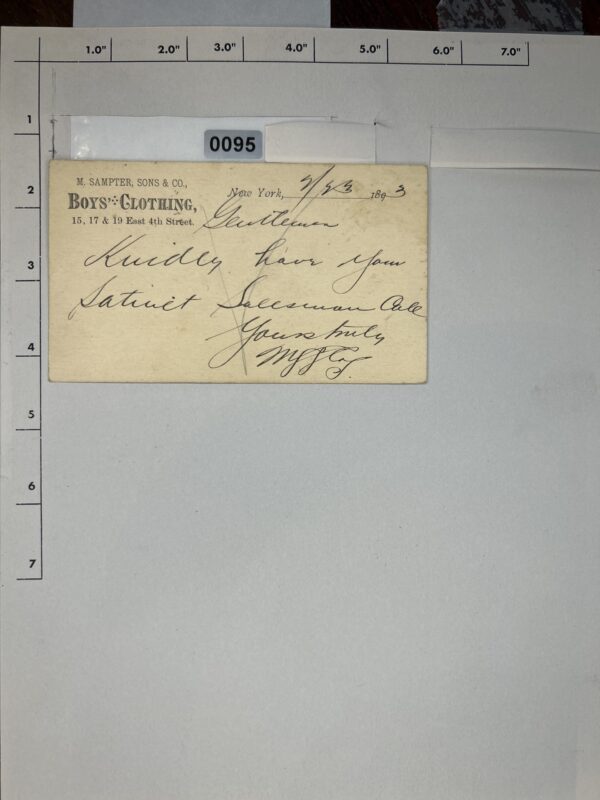 1.0" 2.0" 3.0" 4.0" 5.0" 6.0" 7.0"
1
2
3
4
5
6
7
0095
M. SAMPTER, SONS & CO.,
BOYS' CLOTHING,
15, 17 & 19 East 4th Street.
New York, 1893
Gentlemen
Kindly have your
Satinet Salesman Call
Yours truly